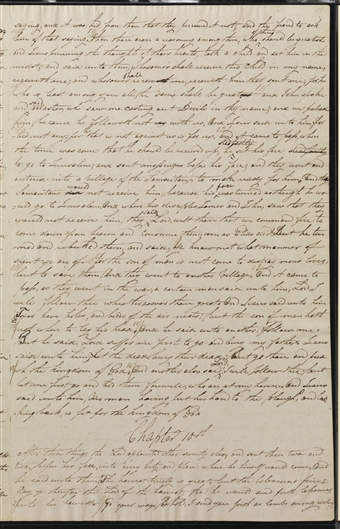 saying, and it was hid from them that they perceived it not, and they feared to ask
him of that saying. Then there arose a reasoning among them, who should be greatest,
and Jesus perceiving the thought of their hearts, took a child and set him in the
midst, and said unto them, Whosoever shall receive this child in my name,
receiveth me, and whosoever shall receive me, receiveth him that sent me, for he
who is least among you all, the same shall be great. And John spake
and said, Master, we saw one casting out Devils in thy name, and we forbad
him because he followeth not with us, And Jesus said unto him, for
bid not any, for that is not against us is for us, and it came to pass when
the time was come that he should be received up, he steadfastly set his face
to go to Jerusalem, and sent messengers before his face, and they went and
entered into a village of the Samaritans to make ready for him, And the
Samaritans would not receive him, because his face was turned as though he wo
uld go to Jerusalem. And when his disciples, James and John, saw that they
would not receive him, they said, Lord wilt thou that we command fire to
come down from heaven and consume them, even as Elias did? But he tur
ned and rebuked them, and said, Ye know not what manner of
spirit ye are of. For the son of man is not come to destroy mens lives,
but to save them, And they went to another village. And it came to
pass, as they went in the way, a certain man said unto him, Lord I
will follow thee whithersoever thou goest. And Jesus said unto him
Foxes have holes, and birds of the air nests, but the son of man hath
not where to lay his head. And he said unto another, Follow me.
But he said, Lord suffer me first to go and bury my father. Jesus
said unto him, Let the dead bury their dead, But go thou and prea
ch the kingdom of God. and another also said, Lord, I will follow thee, but
let me first go and bid them farewell, who are at my house, And Jesus
said unto him, No man having put his hand to the plough, and loo
king back, is fit for the kingdom of God
Chapter 10th
After these things the Lord appointed other seventy also, and sent them two and
two, before his face, into every city and place where he himself would come, And
he said unto them, The harvest truly is great, but the labourers few.
Pray ye therefore the Lord of the harvest, that he would send forth labourers
into his harvest. Go your ways, Behold I send you forth as lambs among wolves